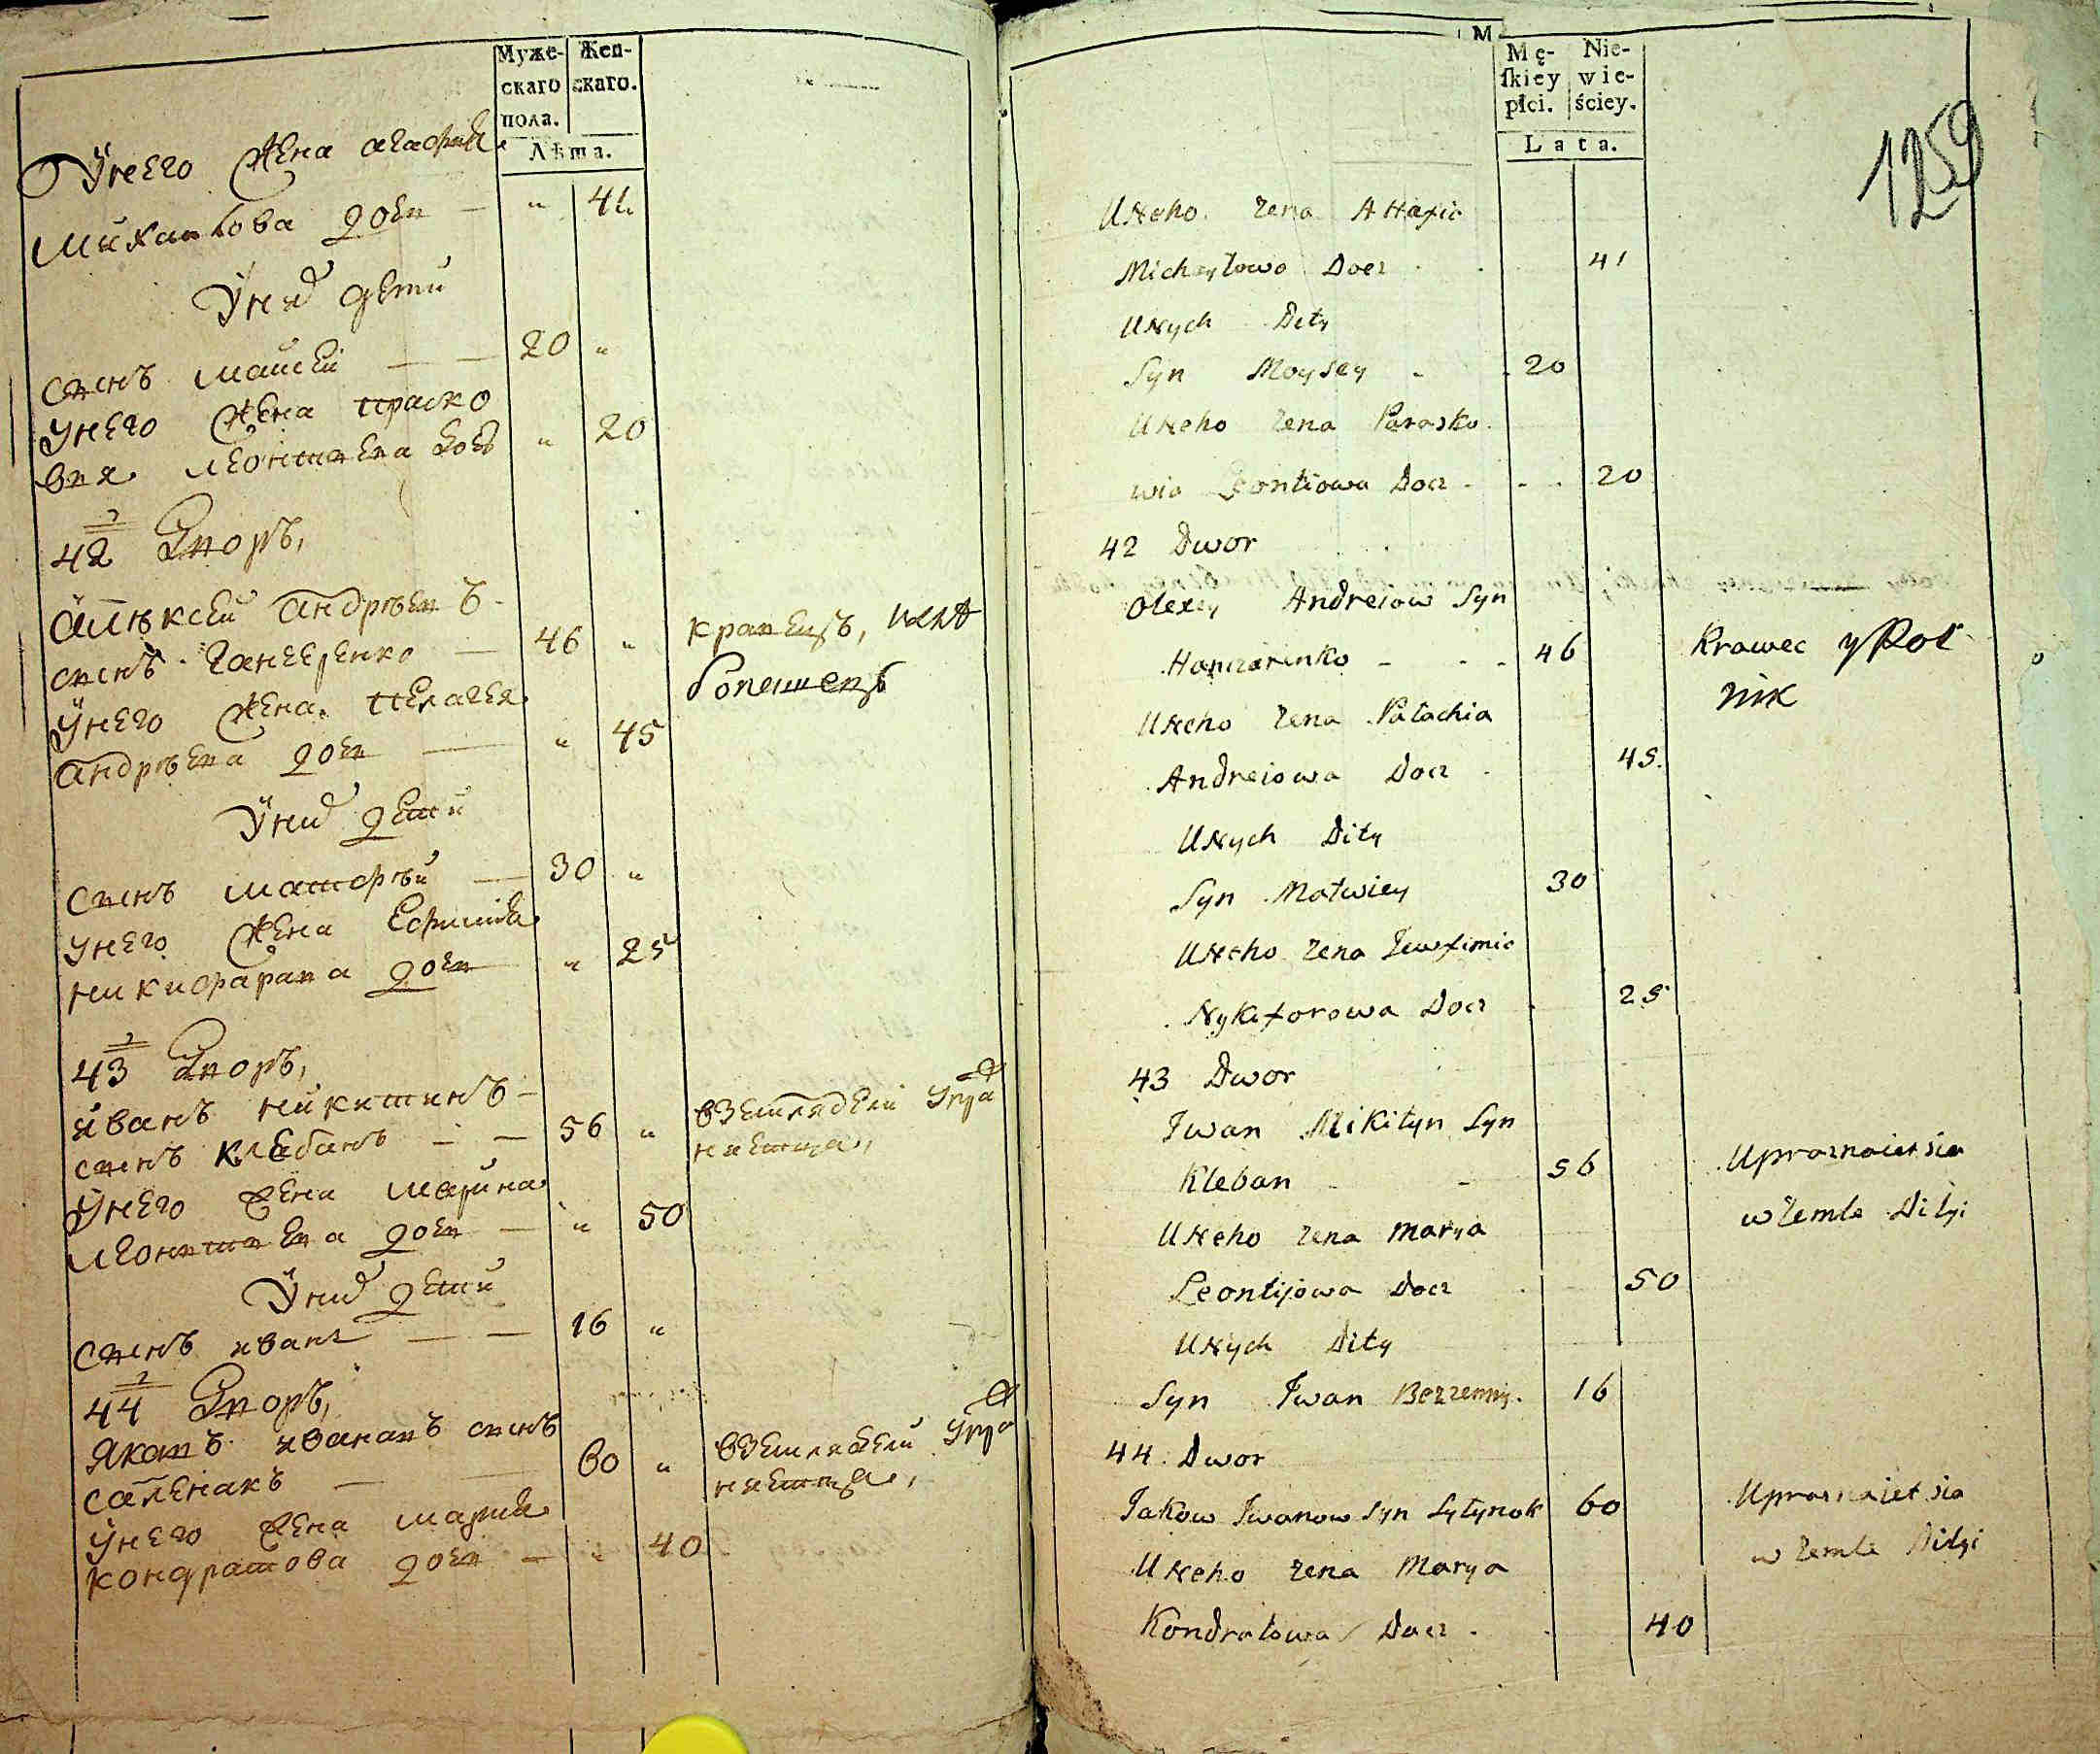 Муже-
скаго
пола.
Жен-
скаго.
Лѣта.
Унего жена агафия
Михаилова дочь — " 41
Уних дети
Сынъ Мойсей — — 20 "
Унего жена праско
вия леонтиева дочь " 20
42 Дворъ,
Алѣксей андрѣевъ
сынъ Ганчеренко — 46 " кравецъ,
Унего жена пелагея
андрѣева дочь — " 45
Уних дети
Сынъ матфѣй — 30 "
Унего жена Ефимия
никифарава дочь " 25
43 Дворъ,
Иванъ никитинъ —
сынъ клебанъ — — 56 " вземледелии упра
няетца,
Унего жена марина
леонтиева дочь — " 50
Уних дети
Сынъ иванъ — — 16 "
44 Дворъ,
Яковъ ивановъ сынъ
60 " вземледелии упра
няетца,
Унего жена мария
кондратова дочь — " 40
M
Mę-
ſkiey
płci.
Nie-
wie-
ściey.
Lata.
1259
UNeho Zena AHafia
Michayłowa Docz 41
UNych Dity
Syn Moysey 20
UNeho Zena Parasko
wia Leontiowa Docz 20
42 Dwor
Olexey Andreiow Syn
Hanczarenko 46 Krawec y Rol
nik
UNeho Zena Pałachia
Andreiowa Docz 45.
UNych Dity
Syn Matwiey 30
UNeho Zena Jewfimia
Nykiforowa Docz 25
43 Dwor
Jwan Mikityn Syn
Kleban 56 Uprazniaiet sia
w Zemle Dilyi
UNeho Zena Marya
Leontijowa Docz 50
UNych Dity
Syn Jwan Bezzenny. 16
44. Dwor
Jakow Jwanow Syn Sytynok 60 Uprazniaiet sia
w Zemle Dilyi
UNeho Zena Marya
Kondratowa Docz 40